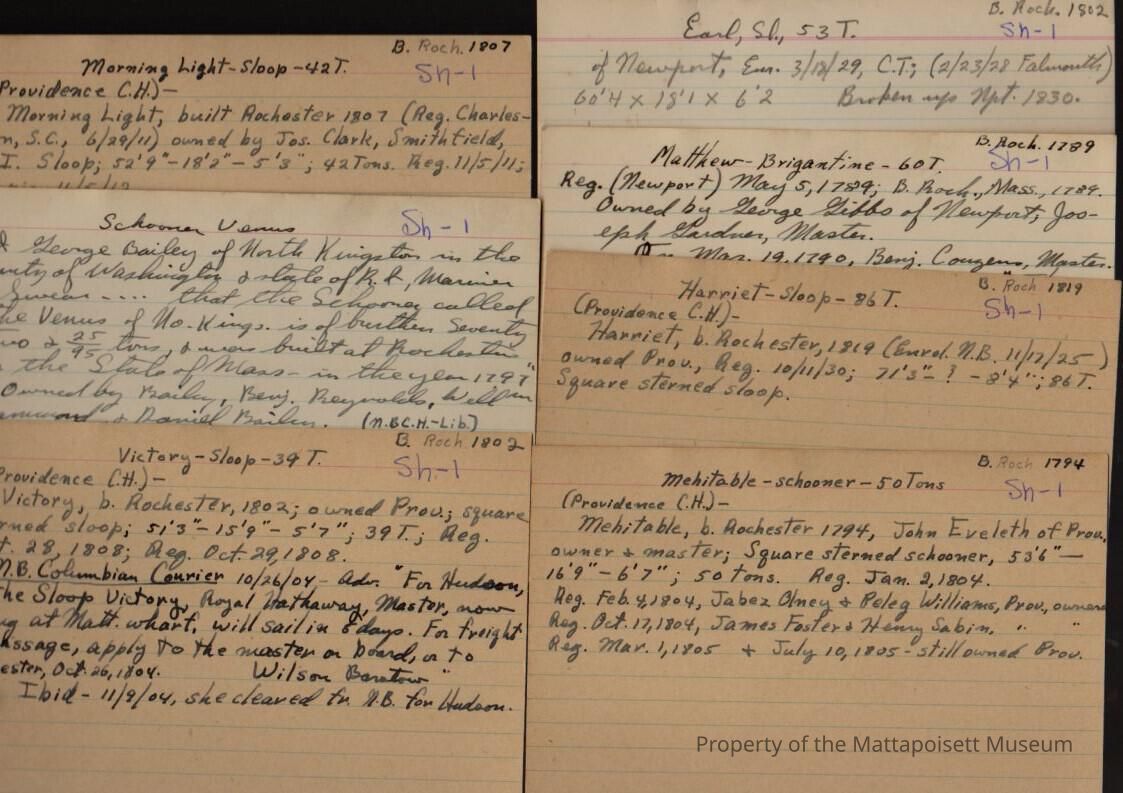 B. Roch. 1807
Morning Light-Sloop-42T.
Sh-1
Providence C.H.)-
Morning Light, built Rochester 1807 (Reg. Charles-
n, S.C., 6/29/11) owned by Jos. Clark, Smithfield,
I. Sloop; 52'9"-18'2"-5'3"; 42Tons. Reg. 11/5/11;
11/5/12
Schooner Venus
Sh-1
George Bailey of North Kingston in the
nty of Washington & state of R.I., Mariner
swear .... that the Schooner called
he Venus of No. Kings. is of burthen Seventy
wo & 25/95 tons, & was built at Rochester
the State of Mass- in the year 1797"
Owned by Bailey, Benj. Reynolds, William
& Daniel Bailey. (N.B.C.H.-Lib.)
B. Roch 1802
Victory-Sloop-39T.
Sh-1
Providence C.H.)-
Victory, b. Rochester, 1802; owned Prov.; square
rned sloop; 51'3"-15'9"-5'7"; 39T.; Reg.
t. 28, 1808; Reg. Oct. 29, 1808.
N.B. Columbian Courier 10/26/04-Adv. "For Hudson,
he Sloop Victory, Royal Hathaway, Master, now
g at Matt. wharf, will sail in 8 days. For freight
assage, apply to the master on board, or to
ester, Oct. 26, 1804. Wilson Barstow"
Ibid-11/9/04, she cleared fr. N.B. for Hudson.
B. Roch. 1802
Earl, Sl., 53T.
Sh-1
of Newport, Enr. 3/18/29, C.T.; (2/23/28 Falmouth)
60'4 x 18'1 x 6'2 Broken up Npt. 1830.
B. Roch. 1789
Matthew-Brigantine-60T.
Sh-1
Reg. (Newport) May 5, 1789; B. Roch., Mass., 1789.
Owned by George Gibbs of Newport; Jos-
eph Gardner, Master.
On Mar. 19, 1790, Benj. Cougens, Master.
B. Roch 1819
Harriet-Sloop-86T.
Sh-1
(Providence C.H.)-
Harriet, b. Rochester, 1819 (Enrol. N.B. 11/17/25)
owned Prov., Reg. 10/11/30; 71'3"-?-8'4"; 86T.
Square sterned sloop.
B. Roch 1794
Mehitable-schooner-50Tons
Sh-1
(Providence C.H.)-
Mehitable, b. Rochester 1794, John Eveleth of Prov.
owner & master; Square sterned schooner, 53'6"-
16'9"-6'7"; 50 tons. Reg. Jan. 2, 1804.
Reg. Feb. 4, 1804, Jabez Olney & Peleg Williams, Prov, owners
Reg. Oct. 17, 1804, James Foster & Henry Sabin, " "
Reg. Mar. 1, 1805 & July 10, 1805-still owned Prov.
Property of the Mattapoisett Museum